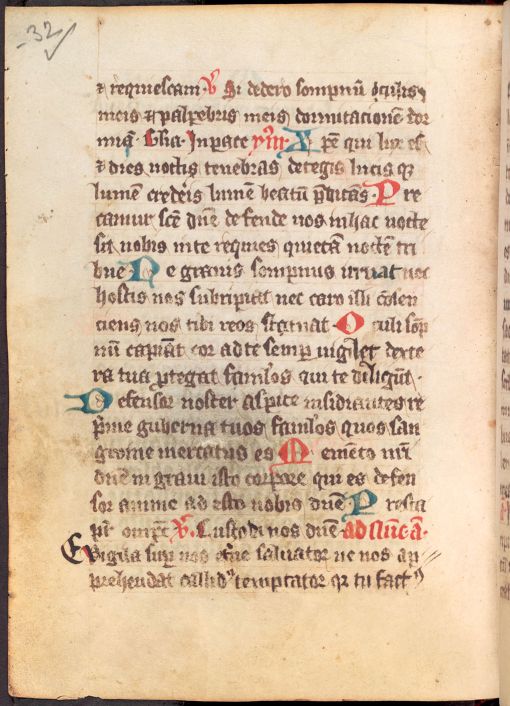 32
⁊ requiescam. V̓ Si dedero sompnū oculis
meis ⁊ palpebris meis dormitacionē dor
mia Glīa In pace ym̄ Xpē qui lux es
⁊ dies noctis tenebras detegis lucis qꝫ
lumē crederis lumen beatū p̄dicās. Pre
camur scē dn̄e defende nos in hac nocte
sit nobis in te requies quietā noctē tri
bue Ne gravis sompnus irruat nec
hostis nos subripiat nec caro illi cōsen
ciens nos tibi reos statuat. Oculi sōp
nū capiāt cor ad te semp̄ vigilet dexte
ra tua ꝓtegat famlos qui te diligūt.
Defensor noster aspice insidiantes re
p̄me guberna tuos famlos quos san
gwine mercatus es Memēto nrī
dn̄e in gravi isto corpore qui es defen
sor anime ad esto nobis dn̄e Presta
pr̄ omp̄c V̓. Custodi nos dn̄e ad Nūc a.
Evigila sup̄ nos etn̄e salvator ne nos ap
prehendat callidꝰ temptator qr tu factꝰ